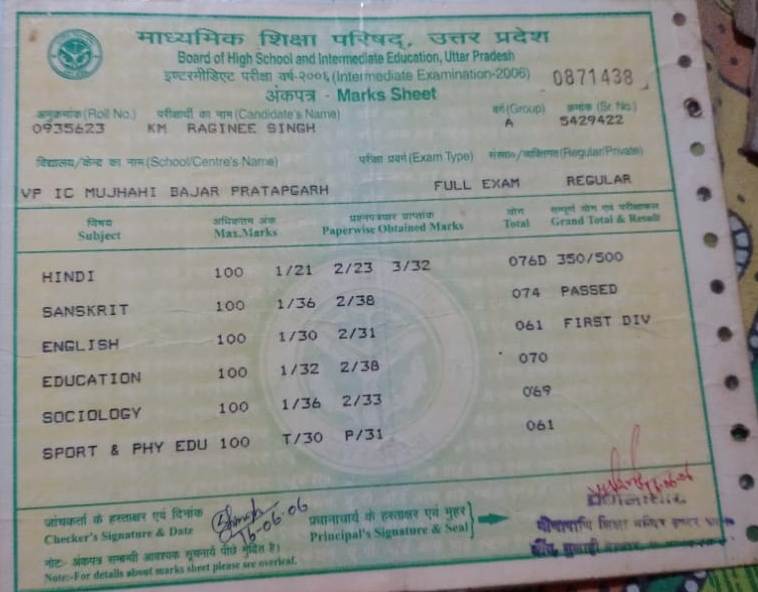 माध्यमिक शिक्षा परिषद्, उत्तर प्रदेश
Board of High School and Intermediate Education, Uttar Pradesh
इण्टरमीडिएट परीक्षा वर्ष-२००६ (Intermediate Examination-2006) 0871438
अंकपत्र - Marks Sheet
अनुक्रमांक (Roll No.) परीक्षार्थी का नाम (Candidate's Name) वर्ग (Group) क्रमांक (Sr. No.)
0935623 KM RAGINEE SINGH A 5429422
विद्यालय/केन्द्र का नाम (School/Centre's Name) परीक्षा प्रवर्ग (Exam Type) संस्थागत/व्यक्तिगत (Regular/Private)
VP IC MUJHAHI BAJAR PRATAPGARH FULL EXAM REGULAR
विषय अधिकतम अंक प्रश्नपत्रवार प्राप्तांक योग सम्पूर्ण योग एवं परीक्षाफल
Subject Max.Marks Paperwise Obtained Marks Total Grand Total & Result
HINDI 100 1/21 2/23 3/32 076D 350/500
SANSKRIT 100 1/36 2/38 074 PASSED
ENGLISH 100 1/30 2/31 061 FIRST DIV
EDUCATION 100 1/32 2/38 070
SOCIOLOGY 100 1/36 2/33 069
SPORT & PHY EDU 100 T/30 P/31 061
जांचकर्ता के हस्ताक्षर एवं दिनांक 16-06-06 प्रधानाचार्य के हस्ताक्षर एवं मुहर
Checker's Signature & Date Principal's Signature & Seal
नोट:- अंकपत्र सम्बन्धी आवश्यक सूचनायें पीछे मुद्रित है।
Note:-For details about marks sheet please see overleaf.